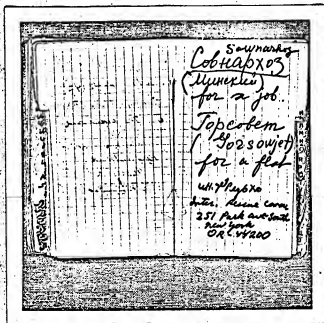 Sownarhoz
Совнархоз
(Минский)
for a job.
Горсовет
(Gorsowjet)
for a flat
Inter. Rescue Com
251 Park ave South
new york
OR 4200